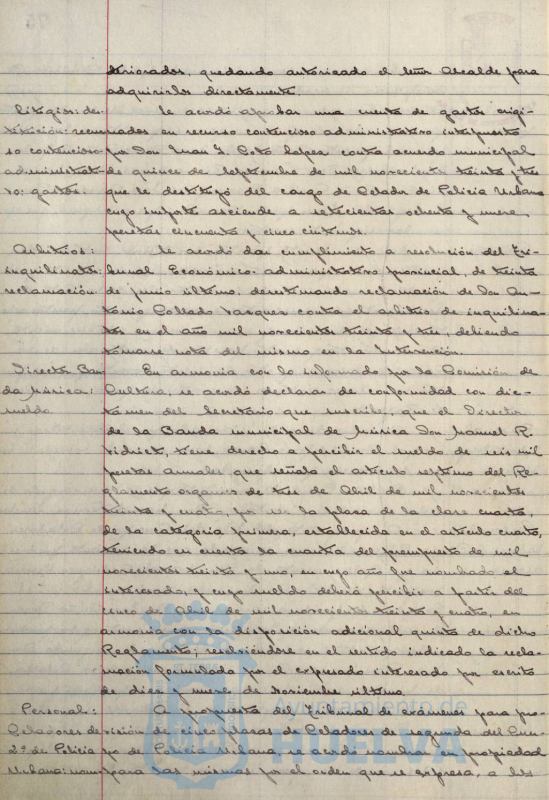 teriorados, quedando autorizado el Señor Alcalde para
adquirirlos directamente.
Litigios: des- Se acordó aprobar una cuenta de gastos origi-
titución: recur- nados en recurso contencioso administrativo interpuesto
so contencioso por Don Juan J. Soto Lopez contra acuerdo municipal
administrati- de quince de Septiembre de mil novecientos treinta y tres
vo: gastos. que le destituyó del cargo de Celador de Policía Urbana
cuyo importe asciende a setecientas ochenta y nueve
pesetas cincuenta y cinco céntimos.
Arbitrios: Se acordó dar cumplimiento a resolución del Tri-
inquilinatos: bunal Económico-administrativo provincial, de treinta
reclamación. de junio último, desestimando reclamación de Don An-
tonio Collado Vazquez contra el arbitrio de inquilina-
tos en el año mil novecientos treinta y tres, debiendo
tomarse nota del mismo en la Intervención.
Director Ban- En armonía con lo informado por la Comisión de
da Música: Cultura, se acordó declarar de conformidad con dic-
sueldo támen del Secretario que suscribe, que el Director
de la Banda municipal de Música Don Manuel R.
tiene derecho a percibir el sueldo de seis mil
pesetas anuales que señala el artículo séptimo del Re-
glamento orgánico de tres de Abril de mil novecientos
treinta y cuatro, por ser la plaza de la clase cuarta,
de la categoría primera, establecida en el artículo cuarto,
teniendo en cuenta la cuantía del presupuesto de mil
novecientos treinta y uno, en cuyo año fue nombrado el
interesado, y cuyo sueldo deberá percibir a partir del
cinco de Abril de mil novecientos treinta y cuatro, en
armonía con la disposición adicional quinta de dicho
Reglamento; resolviéndose en el sentido indicado la recla-
mación formulada por el expresado interesado por escrito
de diez y nueve de Noviembre último.
Personal: A propuesta del Tribunal de exámenes para pro-
Celadores de visión de cinco plazas de Celadores de segunda del Cuer-
2ª de Policía po de Policía Urbana, se acordó nombrar en propiedad
Urbana: nom- para las mismas por el orden que se expresa, a los
Ayuntamiento de
HUELVA